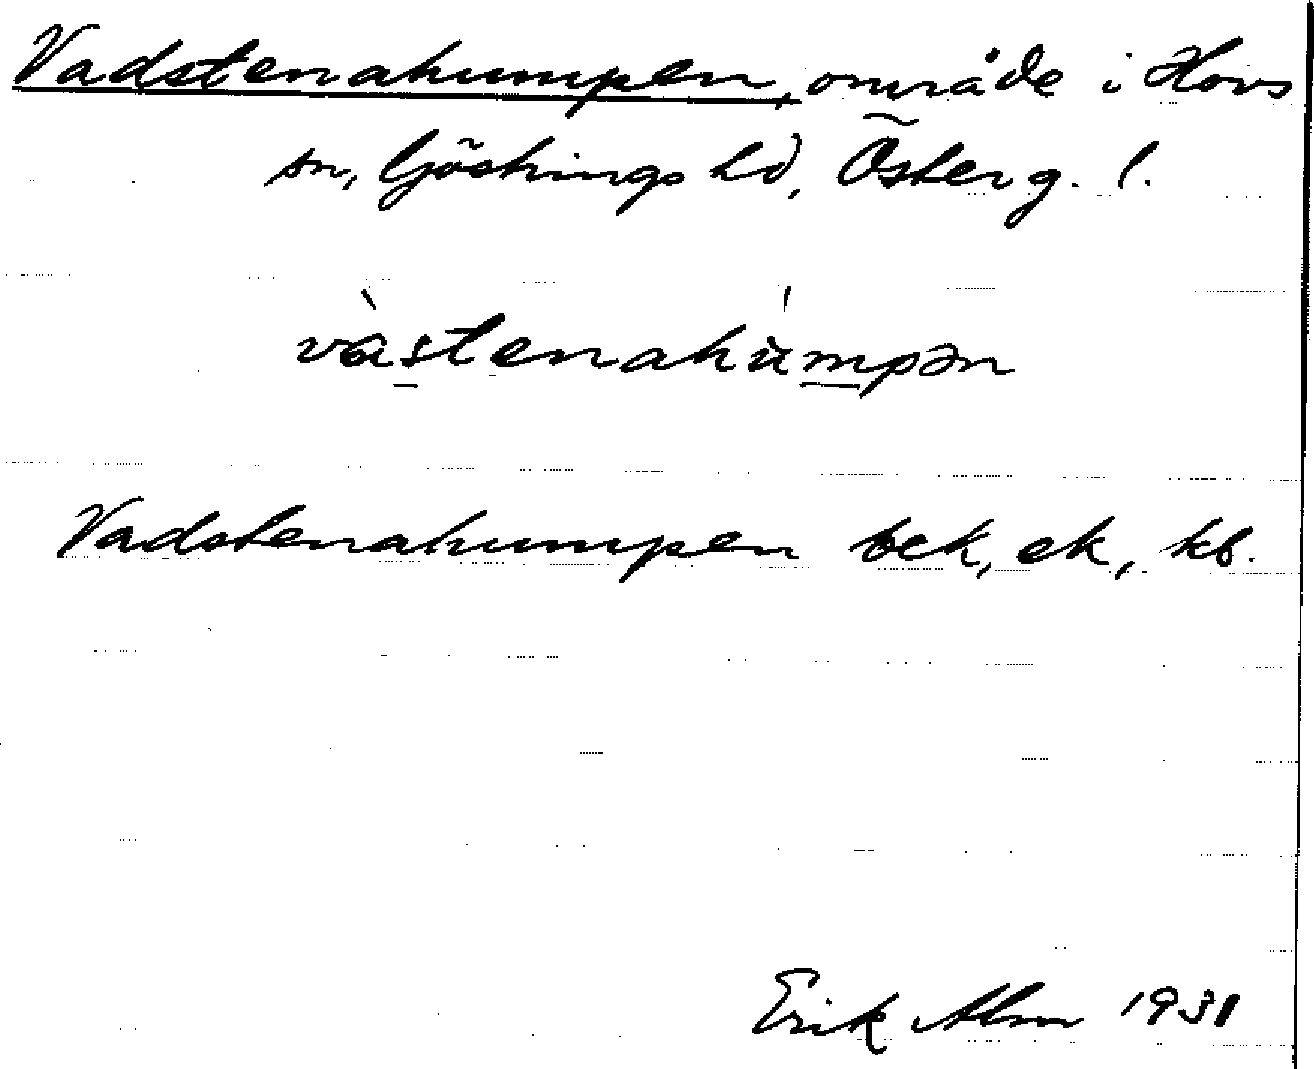 Vadstenahumpen, område i Hovs
sn, Göstrings hd, Österg. l.
vàstenahùmpən
Vadstenahumpen bek, ek, kb.
Erik Alm 1931